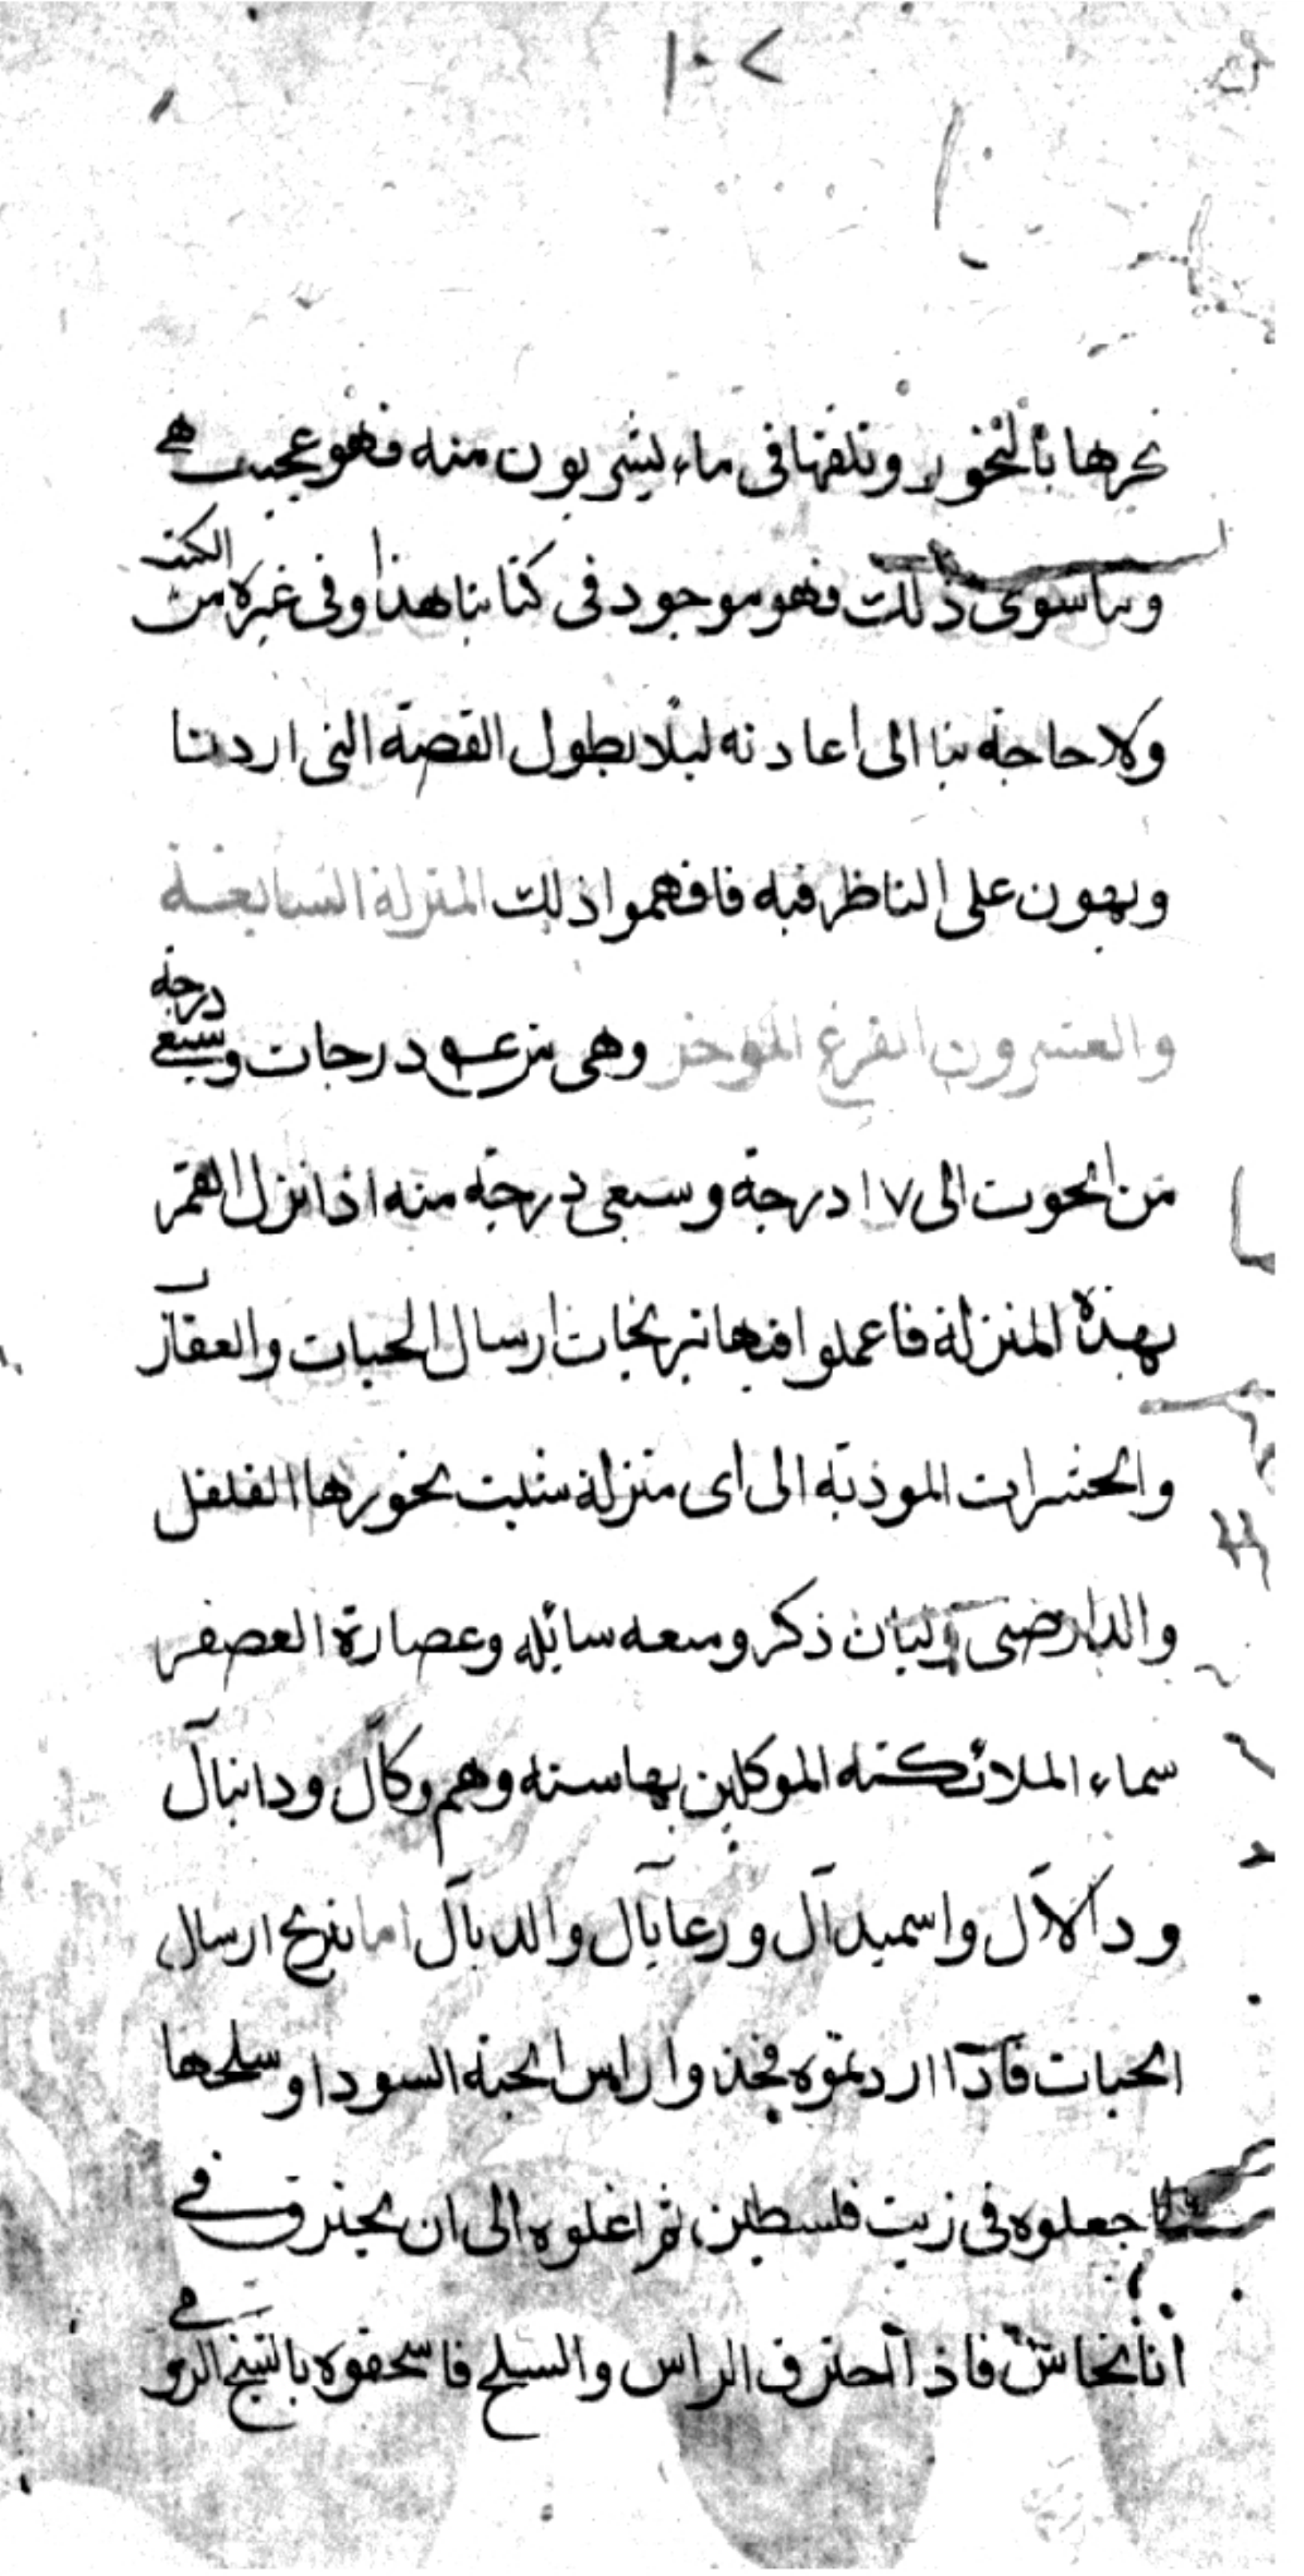 ١٠٢
بخرها بالبخور وتلقها فى ماء يشربون منه فهو عجيب
وما سوى ذلك فهو موجود فى كتابنا هذا وفى غيره من الكتب
ولا حاجة بنا الى اعادته ليلا يطول القصة التى اردنا
ويهون على الناظر فيه فافهموا ذلك المنزلة السابعة
والعشرون الفرغ الموخر وهى من درجات وسبع درجة
من الحوت الى ١٧ درجة وسبعى درجة منه اذا نزل القمر
بهذه المنزلة فاعملوا فيها نيرنجات ارسال الحيات والعقارب
والحشرات الموذية الى اى منزلة شيت بخورها الفلفل
والدارصينى ولبان ذكر وميعه سائله وعصارة العصفر
سماء الملائكته الموكلين بها سته وهم وكآل ودانيآل
ودآلآل واسميدآل ورعايآل والديآل اما نيرنج ارسال
الحيات فاذا اردتموه فخذوا راس الحية السودا وسلحها
اجعلوه فى زيت فلسطين ثم اغلوه الى ان يحترق فى
انا نحاس فاذا احترق الراس والسلح فاسحقوه بالشيح الرومى